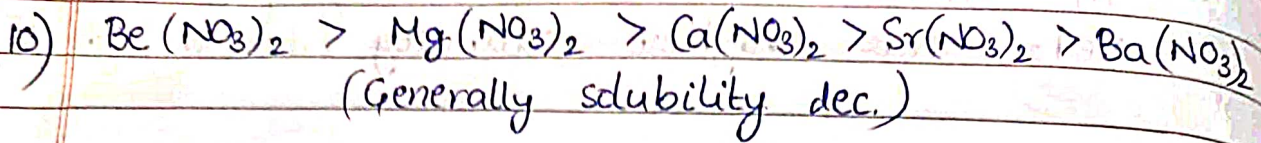 10) Be(NO₃)₂ > Mg(NO₃)₂ > Ca(NO₃)₂ > Sr(NO₃)₂ > Ba(NO₃)₂
(Generally solubility dec.)